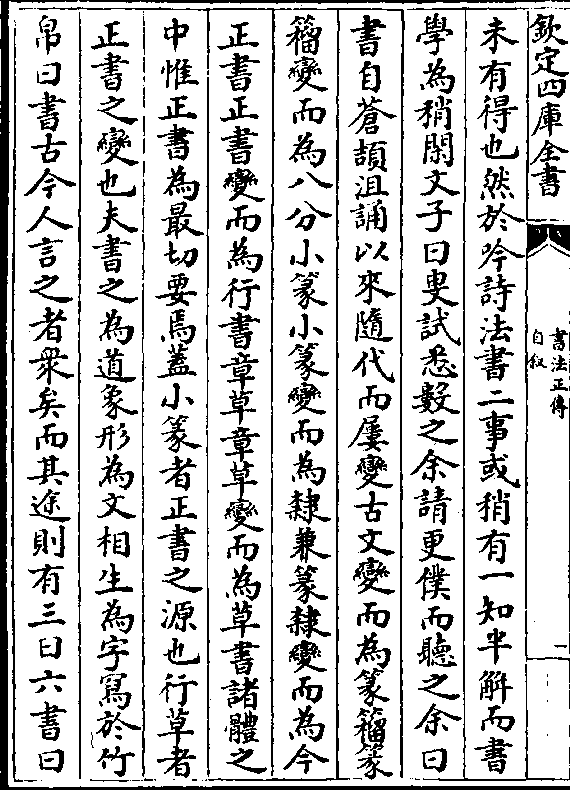 欽定四庫全書
書法正傳
自叙
一
未有得也然於吟詩法書二事或稍有一知半解而書
學為稍閑文子曰叟試悉數之余請更僕而聽之余曰
書自蒼頡沮誦以來隨代而屢變古文變而為篆籀篆
籀變而為八分小篆小篆變而為隸兼篆隸變而為今
正書正書變而為行書章草章草變而為草書諸體之
中惟正書為最切要焉蓋小篆者正書之源也行草者
正書之變也夫書之為道象形為文相生為字寫於竹
帛曰書古今人言之者衆矣而其途則有三曰六書曰